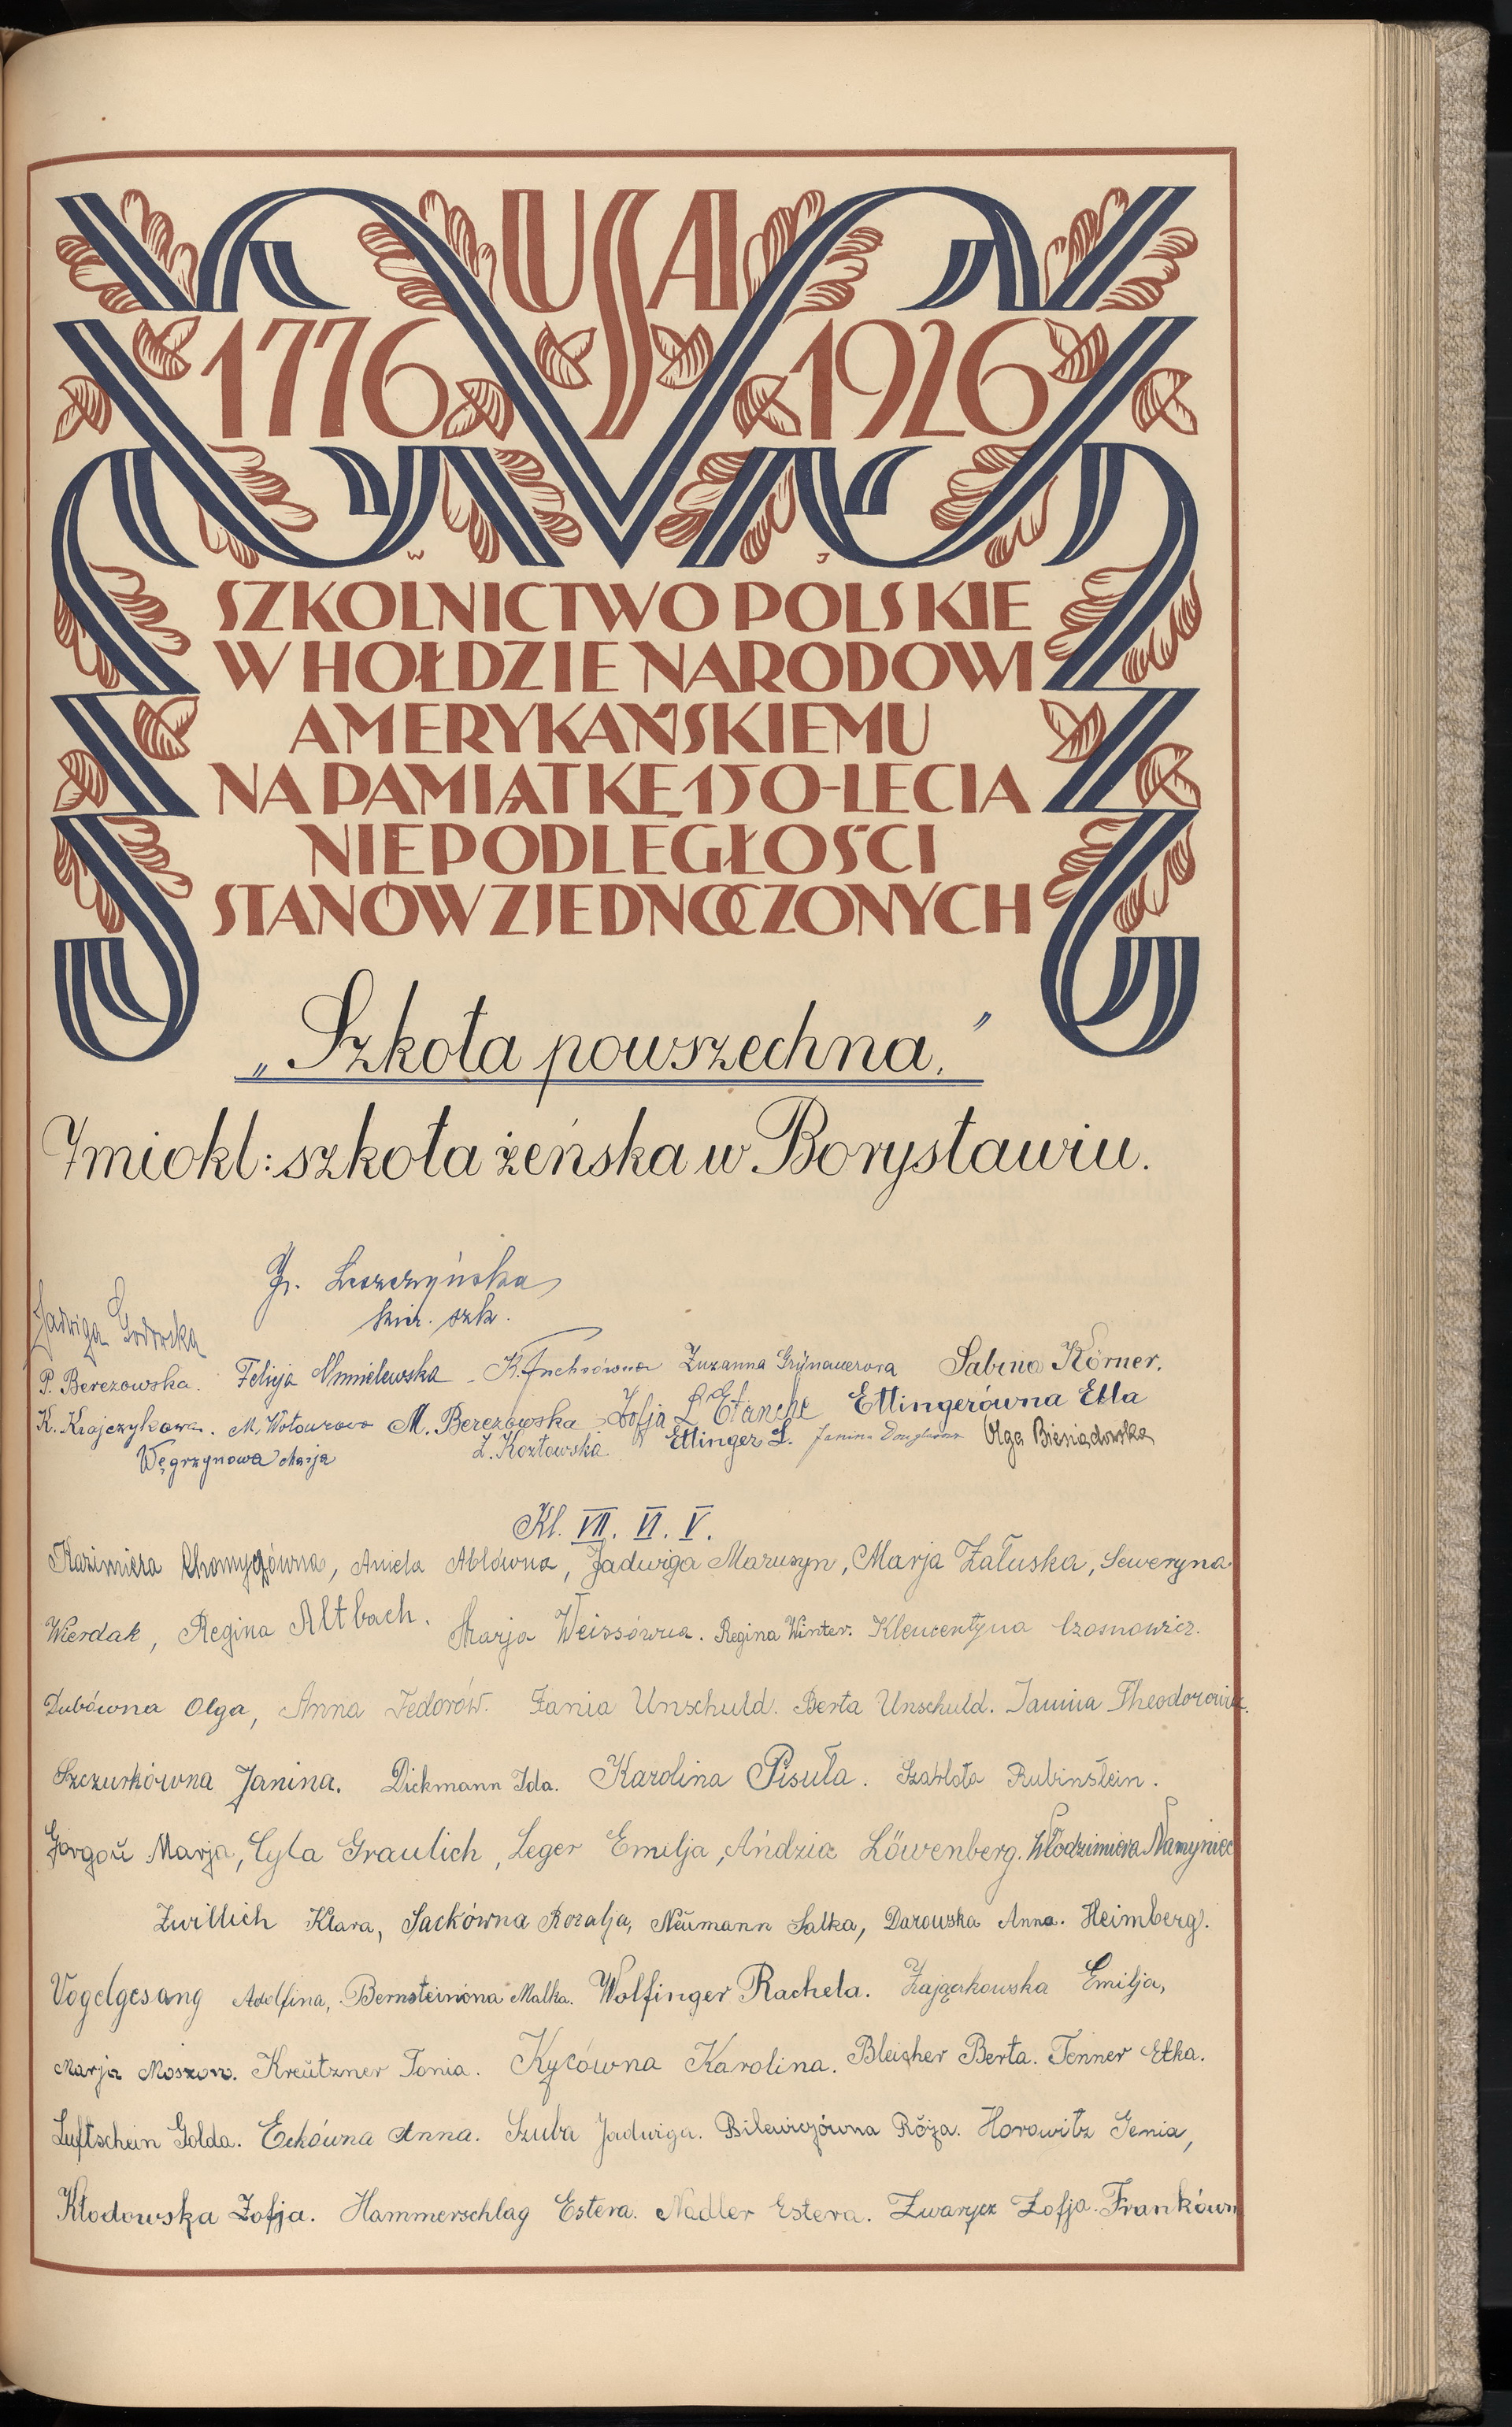 USA
1776 1926
W J
SZKOLNICTWO POLSKIE
W HOŁDZIE NARODOWI
AMERYKAŃSKIEMU
NA PAMIĄTKĘ 150-LECIA
NIEPODLEGŁOŚCI
STANÓW ZJEDNOCZONYCH
„Szkoła powszechna."
7miokl: szkoła żeńska w Borysławiu.
Leszczyńska
kier. szk.
Jadwiga
P. Berezowska. Felicja Chmielewska K. Fuchsówna Zuzanna Grünauerowa Sabina Körner.
K. Krajczykowa. M. Berezowska Zofja L'Etanche Ettingerówna Etla
Węgrzynowa Marja Z. Kozłowska Ettinger L. Janina Olga Biesiadowska
Kl. VII. VI. V.
Kazimiera Chomyczówna, Aniela Ablówna, Jadwiga Marusyn, Marja Załuska, Seweryna
Wierdak, Regina Altbach. Marja Weissówna. Regina Winter. Klementyna Czosnowicz.
Dubówna Olga, Anna Fedorów. Fania Unschuld. Berta Unschuld. Janina Theodorowicz.
Szczurkówna Janina. Dickmann Ida. Karolina Pisuła. Szarlota Rubinstein.
Gorgoń Marja, Cyla Graulich, Leger Emilja, Andzia Löwenberg. Włodzimiera Namyniec
Zwillich Klara, Sackówna Rozalja, Neumann Salka, Darowska Anna. Heimberg.
Vogelgesang Adolfina, Bernsteinówna Malka. Wolfinger Rachela. Zajączkowska Emilja,
Marja Moszow. Kreutzner Tonia. Kycówna Karolina. Bleicher Berta. Tenner Etka.
Luftschein Golda. Eckówna Anna. Szuba Jadwiga. Bilewiczówna Róża. Horowitz Genia,
Kłodowska Zofja. Hammerschlag Estera. Nadler Estera. Zwarycz Zofja. Frankówn